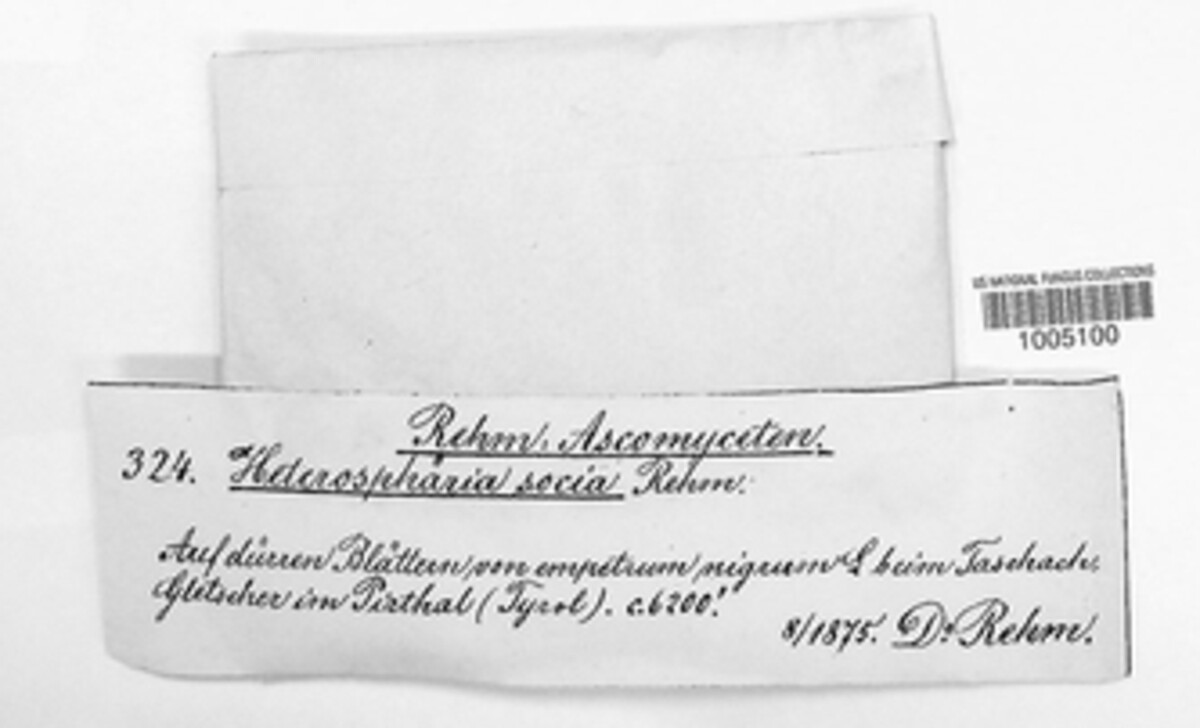 US NATIONAL FUNGUS COLLECTIONS
1005100
Rehm. Ascomyceten.
324. Heterosphäria socia Rehm.
Auf dürren Blättern von empetrum nigrum L beim Taschach-
Gletscher im Pizthal (Tyrol). c. 6200!
8/1875. Dr Rehm.